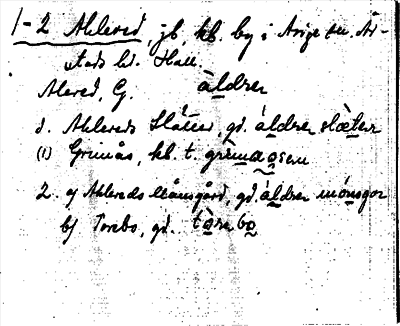 1-2 Ahlered, jb, kb. by i Årige sn. År-
stads hd. Hall.
Alered, G. àldrer
1. Ahlereds Slätter, gd. áldrer slæter
(1) Grimås, kb. t. grìmaosen
2. a) Ahlereds Månsgård, gd. áldrer månsgor
b) Torebo, gd. tòre bo